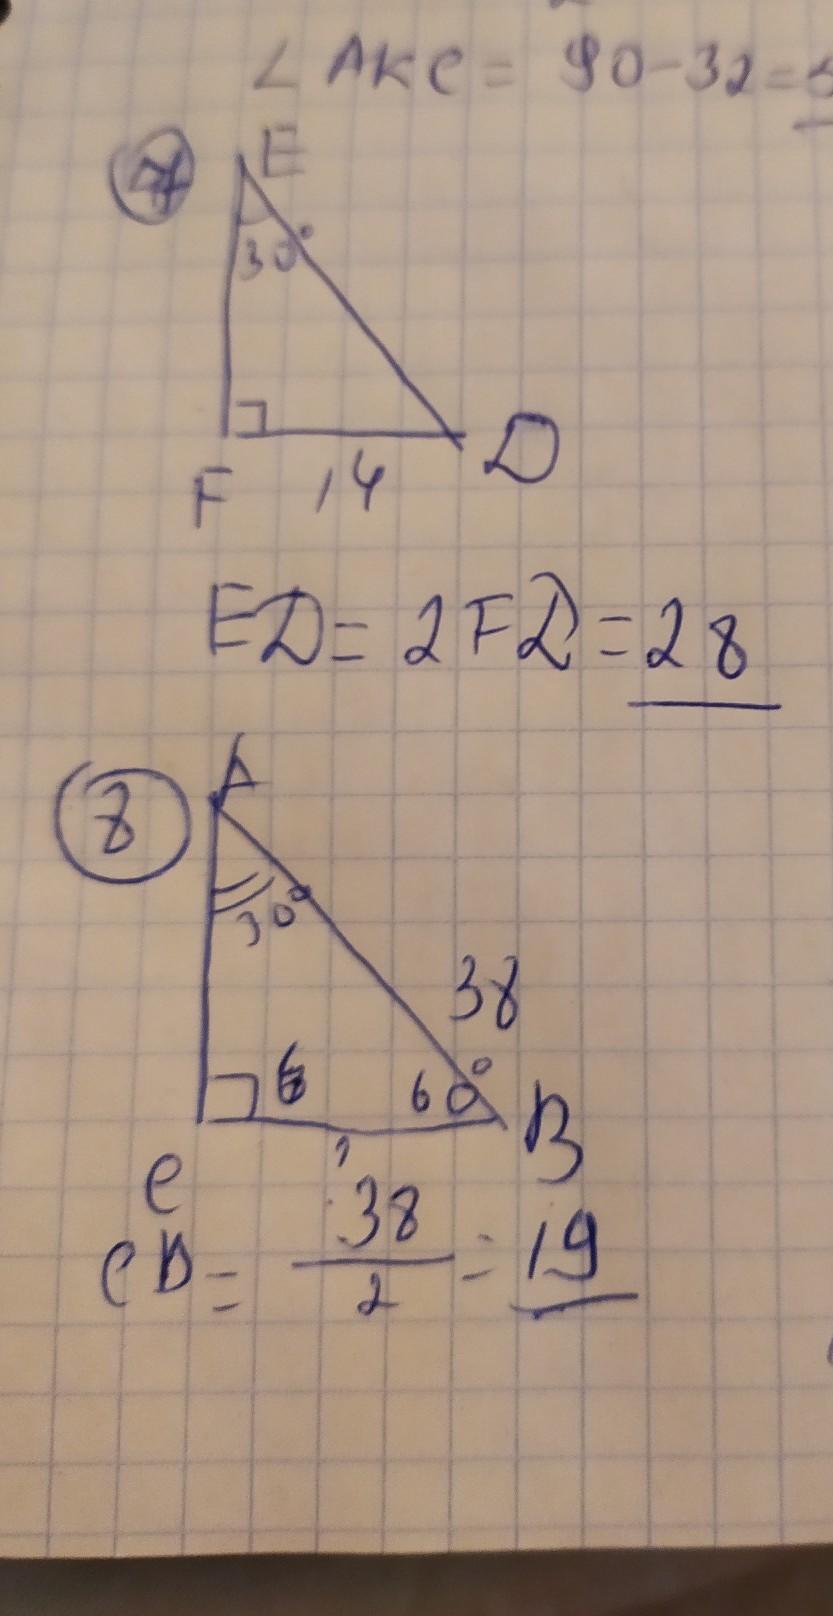 ∠ AKC = 90-32=
7
E
30°
F 14 D
ED = 2FD = 28
8
A
30°
38
6 60° B
C
CB = 38/2 = 19